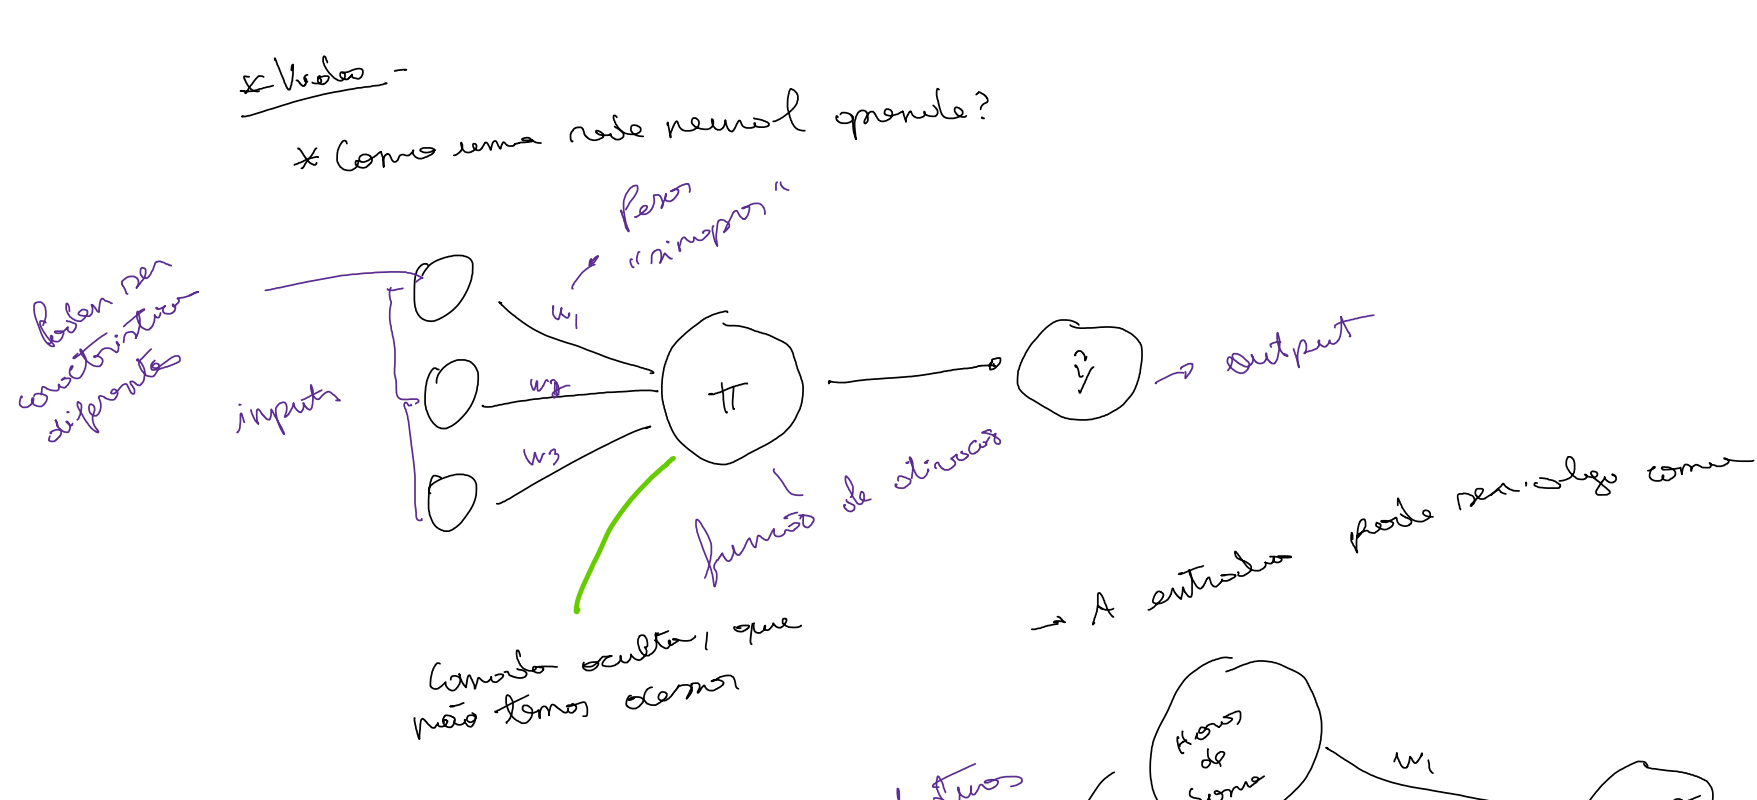 * Vídeo -
* Como uma rede neural aprende?
Pesos
"sinapses"
Podem ser
características
diferentes
inputs
w1
w2
w3
π
ŷ
→ output
função de ativação
Camada oculta, que
não temos acesso
→ A entrada pode ser algo como
Horas
de
sono
w1